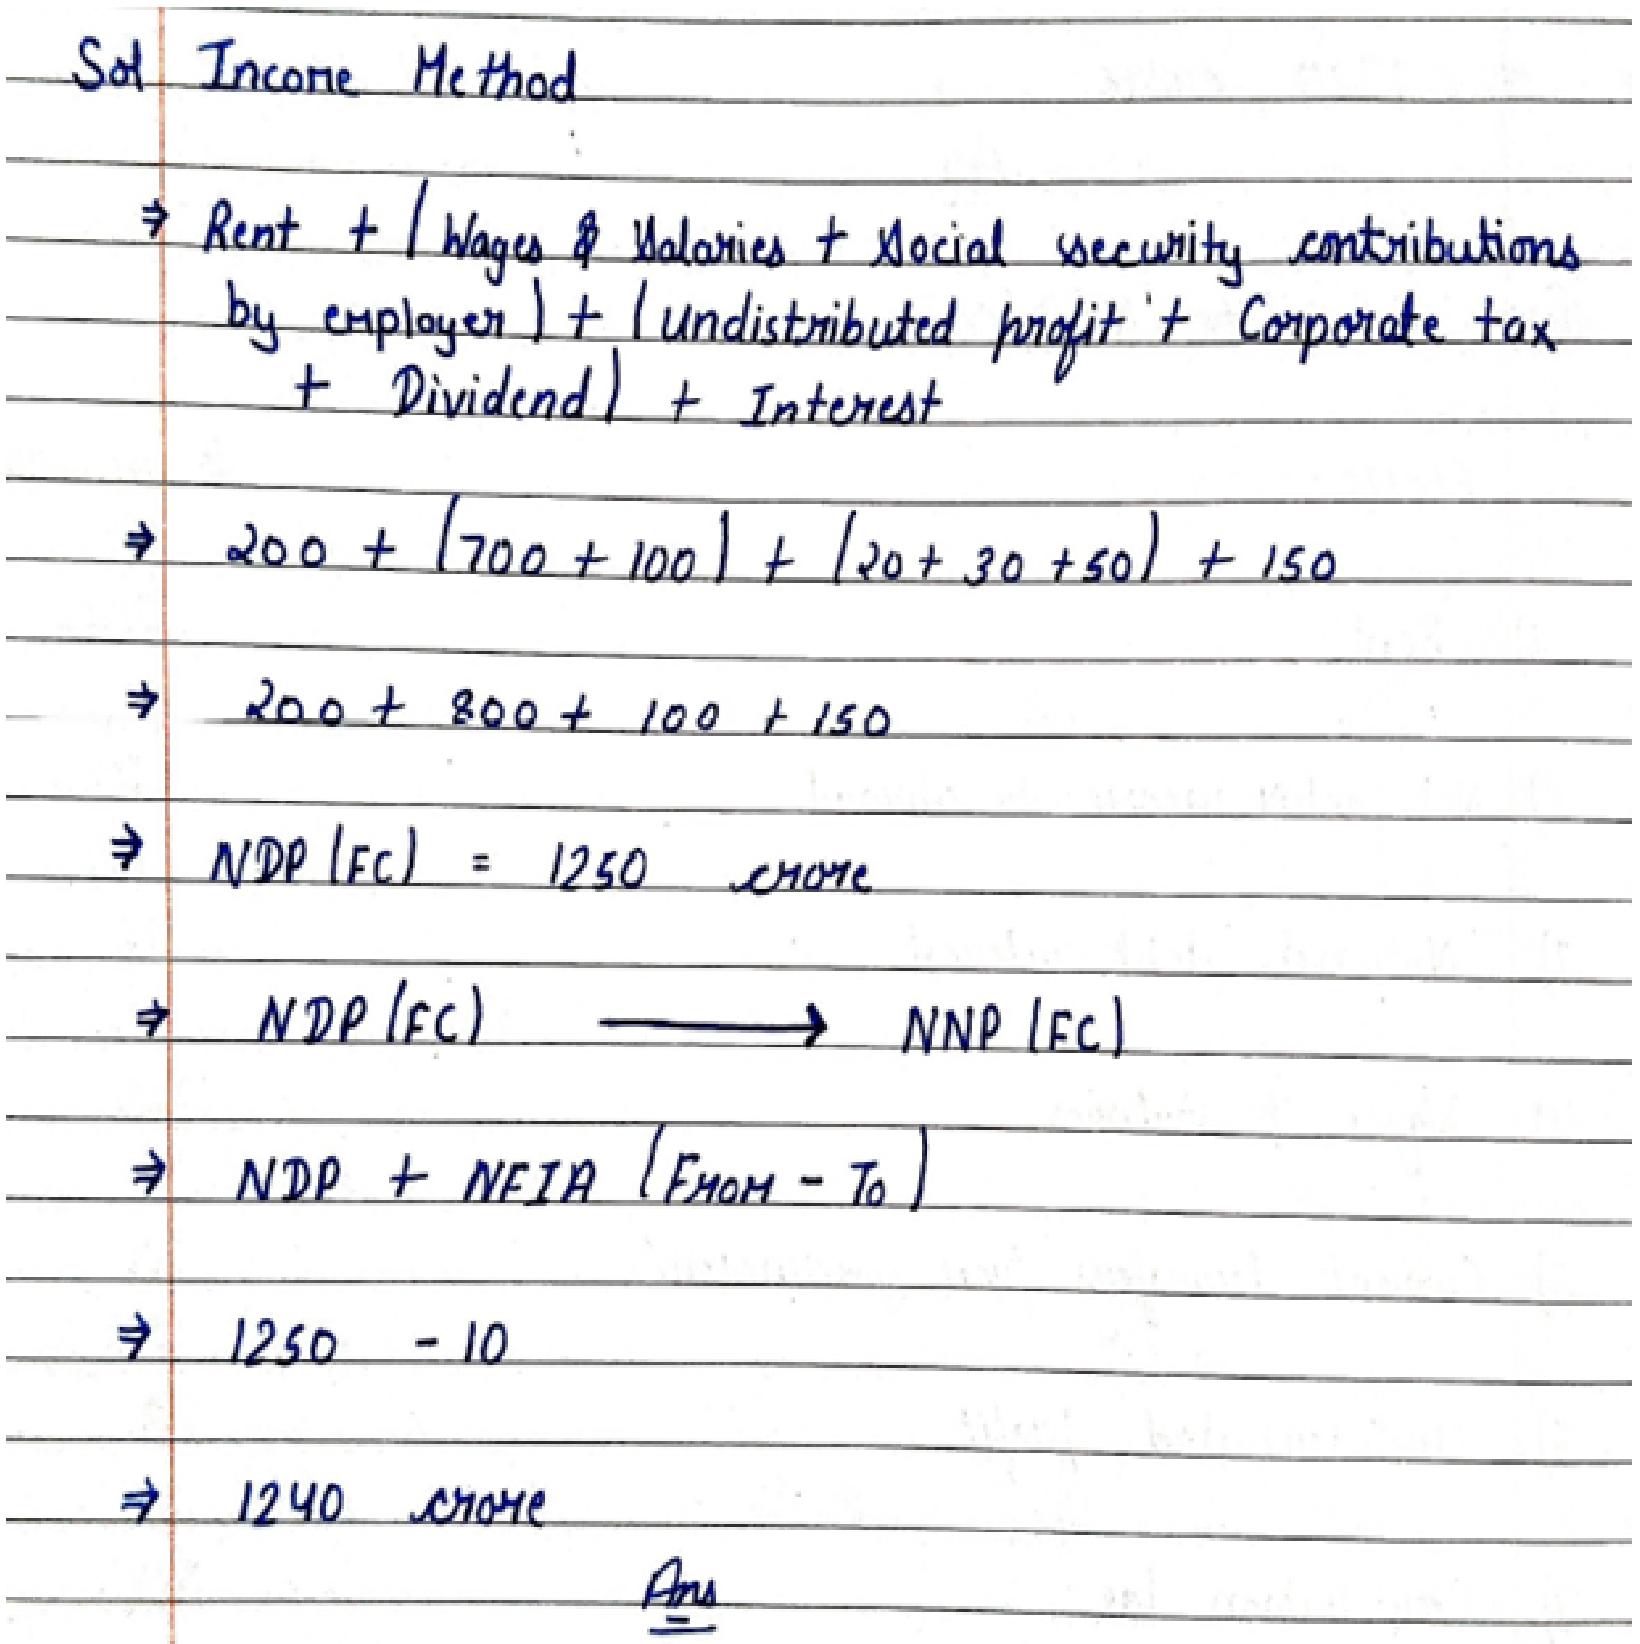 Sol Income Method
⇒ Rent + (Wages & Salaries + Social security contributions
by employer) + (undistributed profit + Corporate tax
+ Dividend) + Interest
⇒ 200 + (700 + 100) + (20 + 30 + 50) + 150
⇒ 200 + 800 + 100 + 150
⇒ NDP (FC) = 1250 crore
⇒ NDP (FC) ⟶ NNP (FC)
⇒ NDP + NFIA (From - To)
⇒ 1250 - 10
⇒ 1240 crore
Ans